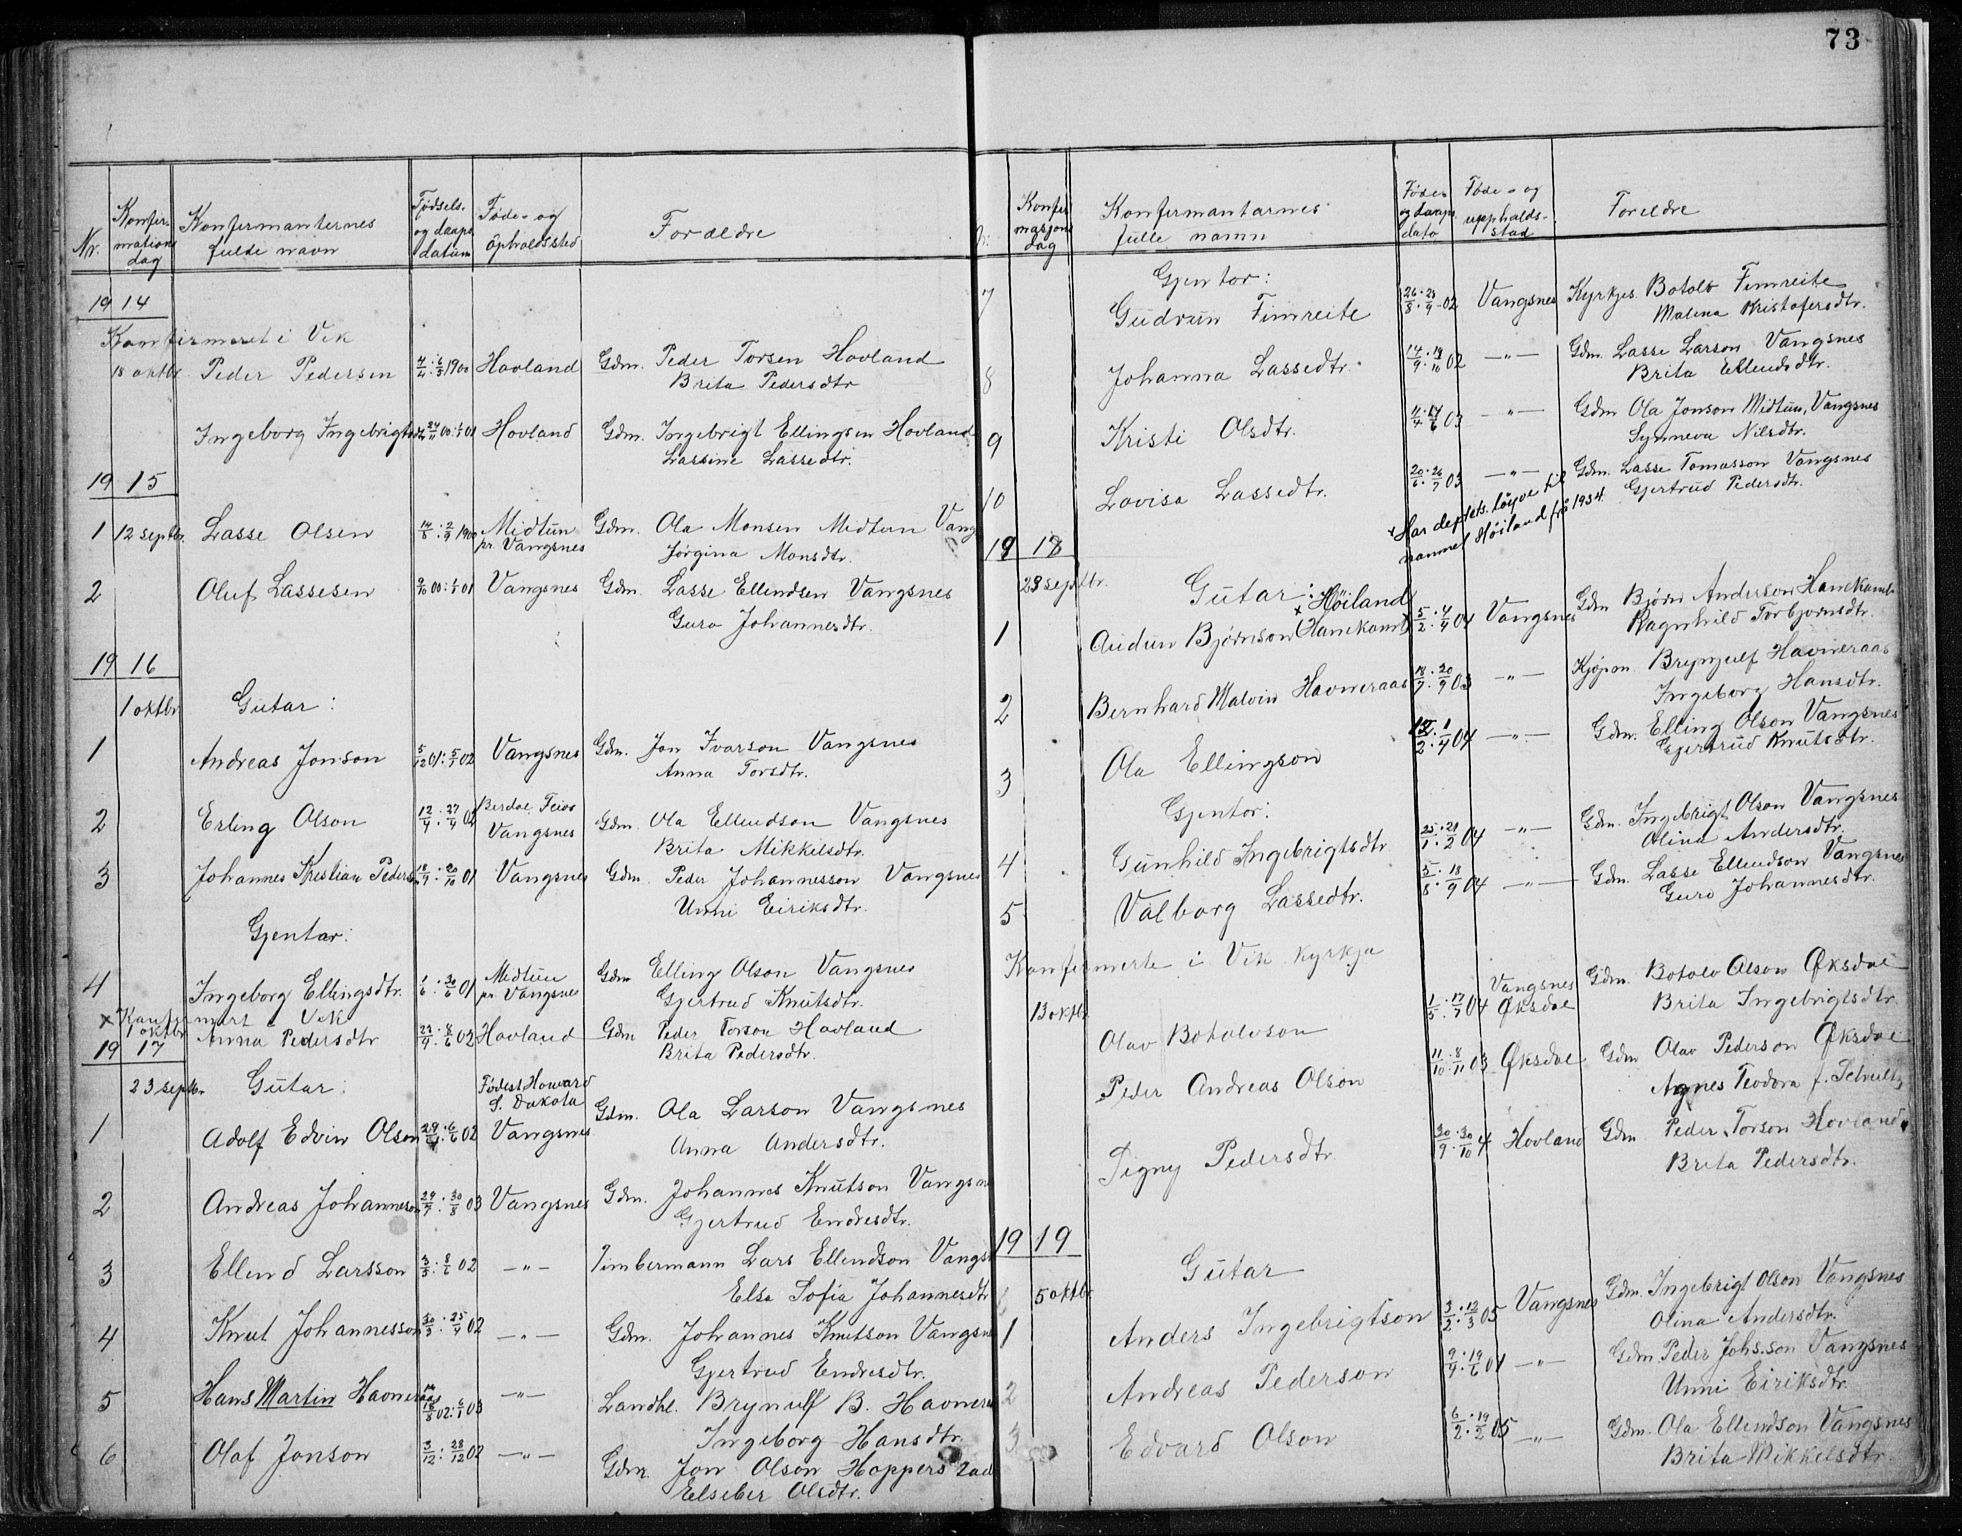 73
Nr. Konfirmations dag Konfirmanternes fulde navn Fødsels- og daaps datum Føde- og opholdssted Forældre
1914
Konfirmeret i Vik
18 oktbr. Peder Pedersen 4/4 : 6/5 1900 Hovland Gdm. Peder Torsen Hovland
Brita Pedersdtr
Ingeborg Ingebrigtsdtr 24/11 00 : 1/1 01 Hovland Gdm. Ingebrigt Ellingsen Hovland
Lassine Lassedtr.
1915
1 12 septbr. Lasse Olsen 14/8 : 2/9 1900 Midtun pr. Vangsnes Gdm. Ola Monsen Midtun Vang
Jørgina Monsdtr.
2 Oluf Lassesen 9/10 00 : 1/1 01 Vangsnes Gdm. Lasse Ellendsen Vangsnes
Guro Johannesdtr.
1916
1 oktbr Gutar :
1 Andreas Jonson 5/12 01 : 5/1 02 Vangsnes Gdm. Jon Ivarson Vangsnes
Anna Torsdtr.
2 Erling Olson 12/4 : 27/4 02 Berdal, Feios Vangsnes Gdm. Ola Ellendson Vangsnes
Brita Mikkelsdtr.
3 Johannes Kristian Pederson 18/9 : 20/10 01 Vangsnes Gdm. Peder Johannesson Vangsnes
Unni Eiriksdtr.
Gjentar:
4 Ingeborg Ellingsdtr. 1/6 : 30/6 01 Midtun pr. Vangsnes Gdm Elling Olson Vangsnes
Gjertrud Knutsdtr.
x Konfirmert i Vik
1 oktbr Anna Pedersdtr 27/4 : 8/6 02 Hovland Gdm Peder Torson Hovland
Brita Pedersdtr.
1917
23 septbr. Gutar : Fødest Howard S. Dakota
1 Adolf Edvin Olson 29/4 : 6/6 02 Vangsnes Gdm. Ola Larson Vangsnes
Anna Andersdtr.
2 Andreas Johanneson 29/7 : 30/8 03 Vangsnes Gdm. Johannes Knutson Vangsn
Gjertrud Endresdtr.
3 Ellend Larsson 3/5 : 8/6 02 —"— Timbermann Lars Ellendson Vangs
Elsa Sofia Johannesdtr
4 Knut Johannesson 30/3 : 25/4 02 —"— Gdm. Johannes Knutson Vangsn
Gjertrud Endresdtr.
5 Hans Martin Havneraas 18/8 02 : 6/1 03 —"— Landhl. Brynulf B. Havnera
Ingeborg Hansdtr.
6 Olaf Jonson 3/12 : 28/12 02 —"— Gdm. Jon Olson Hoppers tad
Elseber Olsdtr.
Konfirmasjons dag Konfirmantarnes fulle namn Føde- og daaps dato Føde- og uppholds- stad Foreldre
Gjentor:
7 Gudrun Fimreite 26/8 . 23/9 02 Vangsnes Kyrkjes. Botolv Fimreite
Malena Kristofersdtr.
8 Johanna Lassedtr. 14/9 . 19/10 02 —"— Gdm. Lasse Larson Vangsnes
Brita Ellendsdtr.
9 Kristi Olsdtr. 11/4 . 14/6 03 —"— Gdm Ola Jonson Midtun, Vangsnes
Synneva Nilsdtr.
10 Lovisa Lassedtr. 20/6 . 26/7 03 —"— Gdm. Lasse Tomasson Vangsnes
Gjertrud Pedersdtr.
x Har deptets. løyve til
namnet Høiland frå 1934.
1918
23 septbr. Gutar :
x Høiland
1 Audun Bjørnson Hanekamb 5/2 . 4/4 04 Vangsnes Gdm Bjørn Anderson Hanekamb
Ragnhild Torbjørnsdtr.
2 Bernhard Malvin Havneraas 18/7 . 20/9 03 —"— Kjøpm. Brynjulf Havneraas
Ingeborg Hansdtr.
3 Ola Ellingson 12/2 . 1/4 04 —"— Gdm. Elling Olson Vangsnes
Gjertrud Knutsdtr.
Gjentor:
4 Gunhild Ingebrigtsdtr 25/1 . 21/2 04 —"— Gdm. Ingebrigt Olson Vangsnes
Olina Andersdtr.
5 Valborg Lassedtr. 5/8 . 18/9 04 —"— Gdm. Lasse Ellendson Vangsnes
Guro Johannesdtr.
Konfirmerte i Vik kyrkja
13 oktbr Olav Botolvson 1/5 . 17/7 04 Vangsnes Øksdal Gdm Botolv Olson Øksdal
Brita Ingebrigtsdtr.
Peder Andreas Olson 11/10 . 8/11 03 Øksdal Gdm Olav Pederson Øksdal
Agnes Teodora f. Schultz
Signy Pedersdtr 30/9 . 30/10 4 Hovland Gdm. Peder Torson Hovland
Brita Pedersdtr.
1919
Gutar
5 oktbr.
1 Anders Ingebrigtson 3/2 . 12/3 05 Vangsnes Gdm. Ingebrigt Olson Vangsnes
Olina Andersdtr.
2 Andreas Pederson 9/4 . 19/6 04 —"— Gdm Peder Johs.son Vangsnes
Unni Eiriksdtr.
3 Edvard Olson 6/2 . 19/2 05 —"— Gdm. Ola Ellendson Vangsnes
Brita Mikkelsdtr.